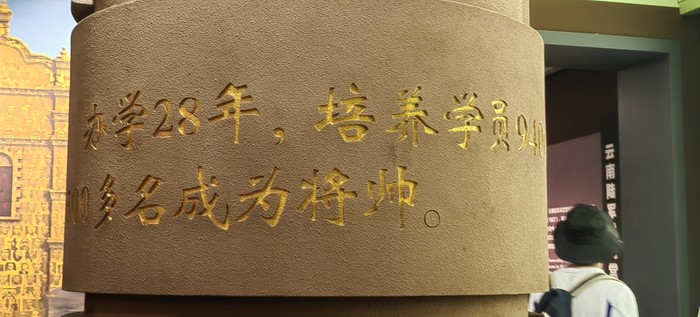 办学28年，培养学员940
00多名成为将帅。
云南陆军